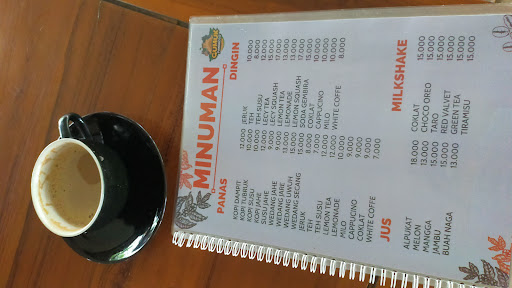 MINUMAN
PANAS
KOPI DAMPIT
KOPI TUBRUK
KOPI SUSU
KOPI JAHE
SUSU JAHE
WEDANG JAHE
WEDANG
WEDANG UWUH
WEDANG SECANG
JERUK
TEH
TEH SUSU
LEMON TEA
LEMONADE
MILO
CAPPUCINO
COKLAT
WHITE COFFE 7.000
DINGIN
JERUK 10.000
TEH 8.000
TEH SUSU 12.000
LECY TEA 15.000
LECY SQUASH 17.000
LEMON TEA 13.000
LEMONADE 13.000
LEMON SQUASH 17.000
SODA GEMBIRA 15.000
COKLAT 10.000
CAPPUCINO 10.000
MILO 10.000
WHITE COFFE 8.000
JUS
ALPUKAT 18.000
MELON 13.000
MANGGA 15.000
JAMBU 15.000
BUAH NAGA 13.000
MILKSHAKE
COKLAT 15.000
CHOCO OREO 15.000
TARO 15.000
RED VALVET 15.000
GREEN TEA 15.000
TIRAMISU 15.000